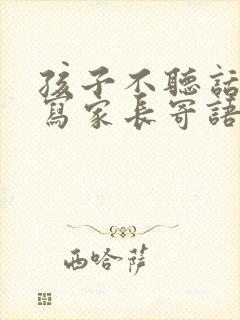 孩子不聽話
寫家長寄語
西哈薩